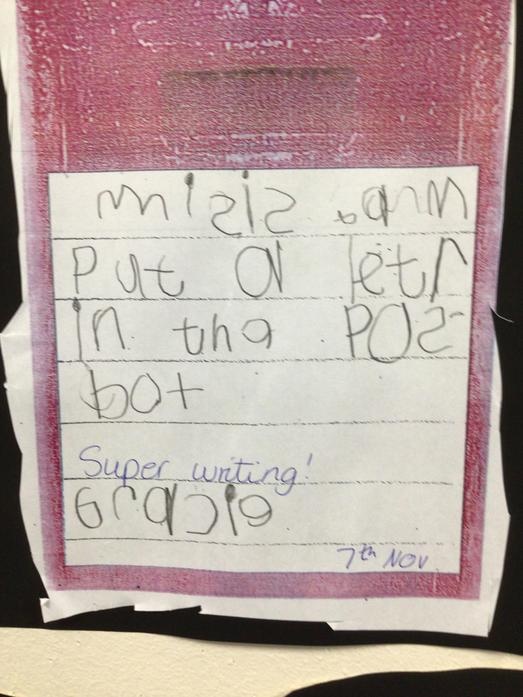 Put a letr
in tha POS
bot
Super writing!
Gracie
7th NOV